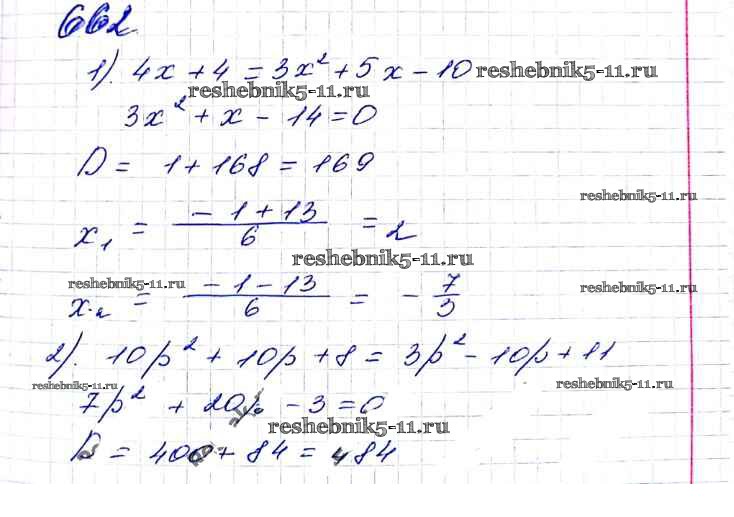 662.
1). 4x + 4 = 3x² + 5x - 10 reshebnik5-11.ru
reshebnik5-11.ru
3x² + x - 14 = 0
D = 1 + 168 = 169
reshebnik5-11.ru
x₁ = (-1 + 13)/6 = 2
reshebnik5-11.ru
reshebnik5-11.ru
reshebnik5-11.ru
x₂ = (-1 - 13)/6 = -7/3
2). 10p² + 10p + 8 = 3p² - 10p + 11
reshebnik5-11.ru
reshebnik5-11.ru
7p² + 20p - 3 = 0
reshebnik5-11.ru
D = 400 + 84 = 484